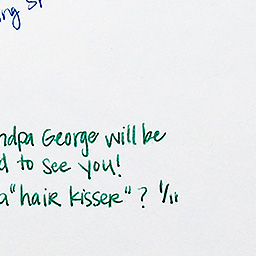 ing
George will be
to see you!
"hair kisser"? 1/11